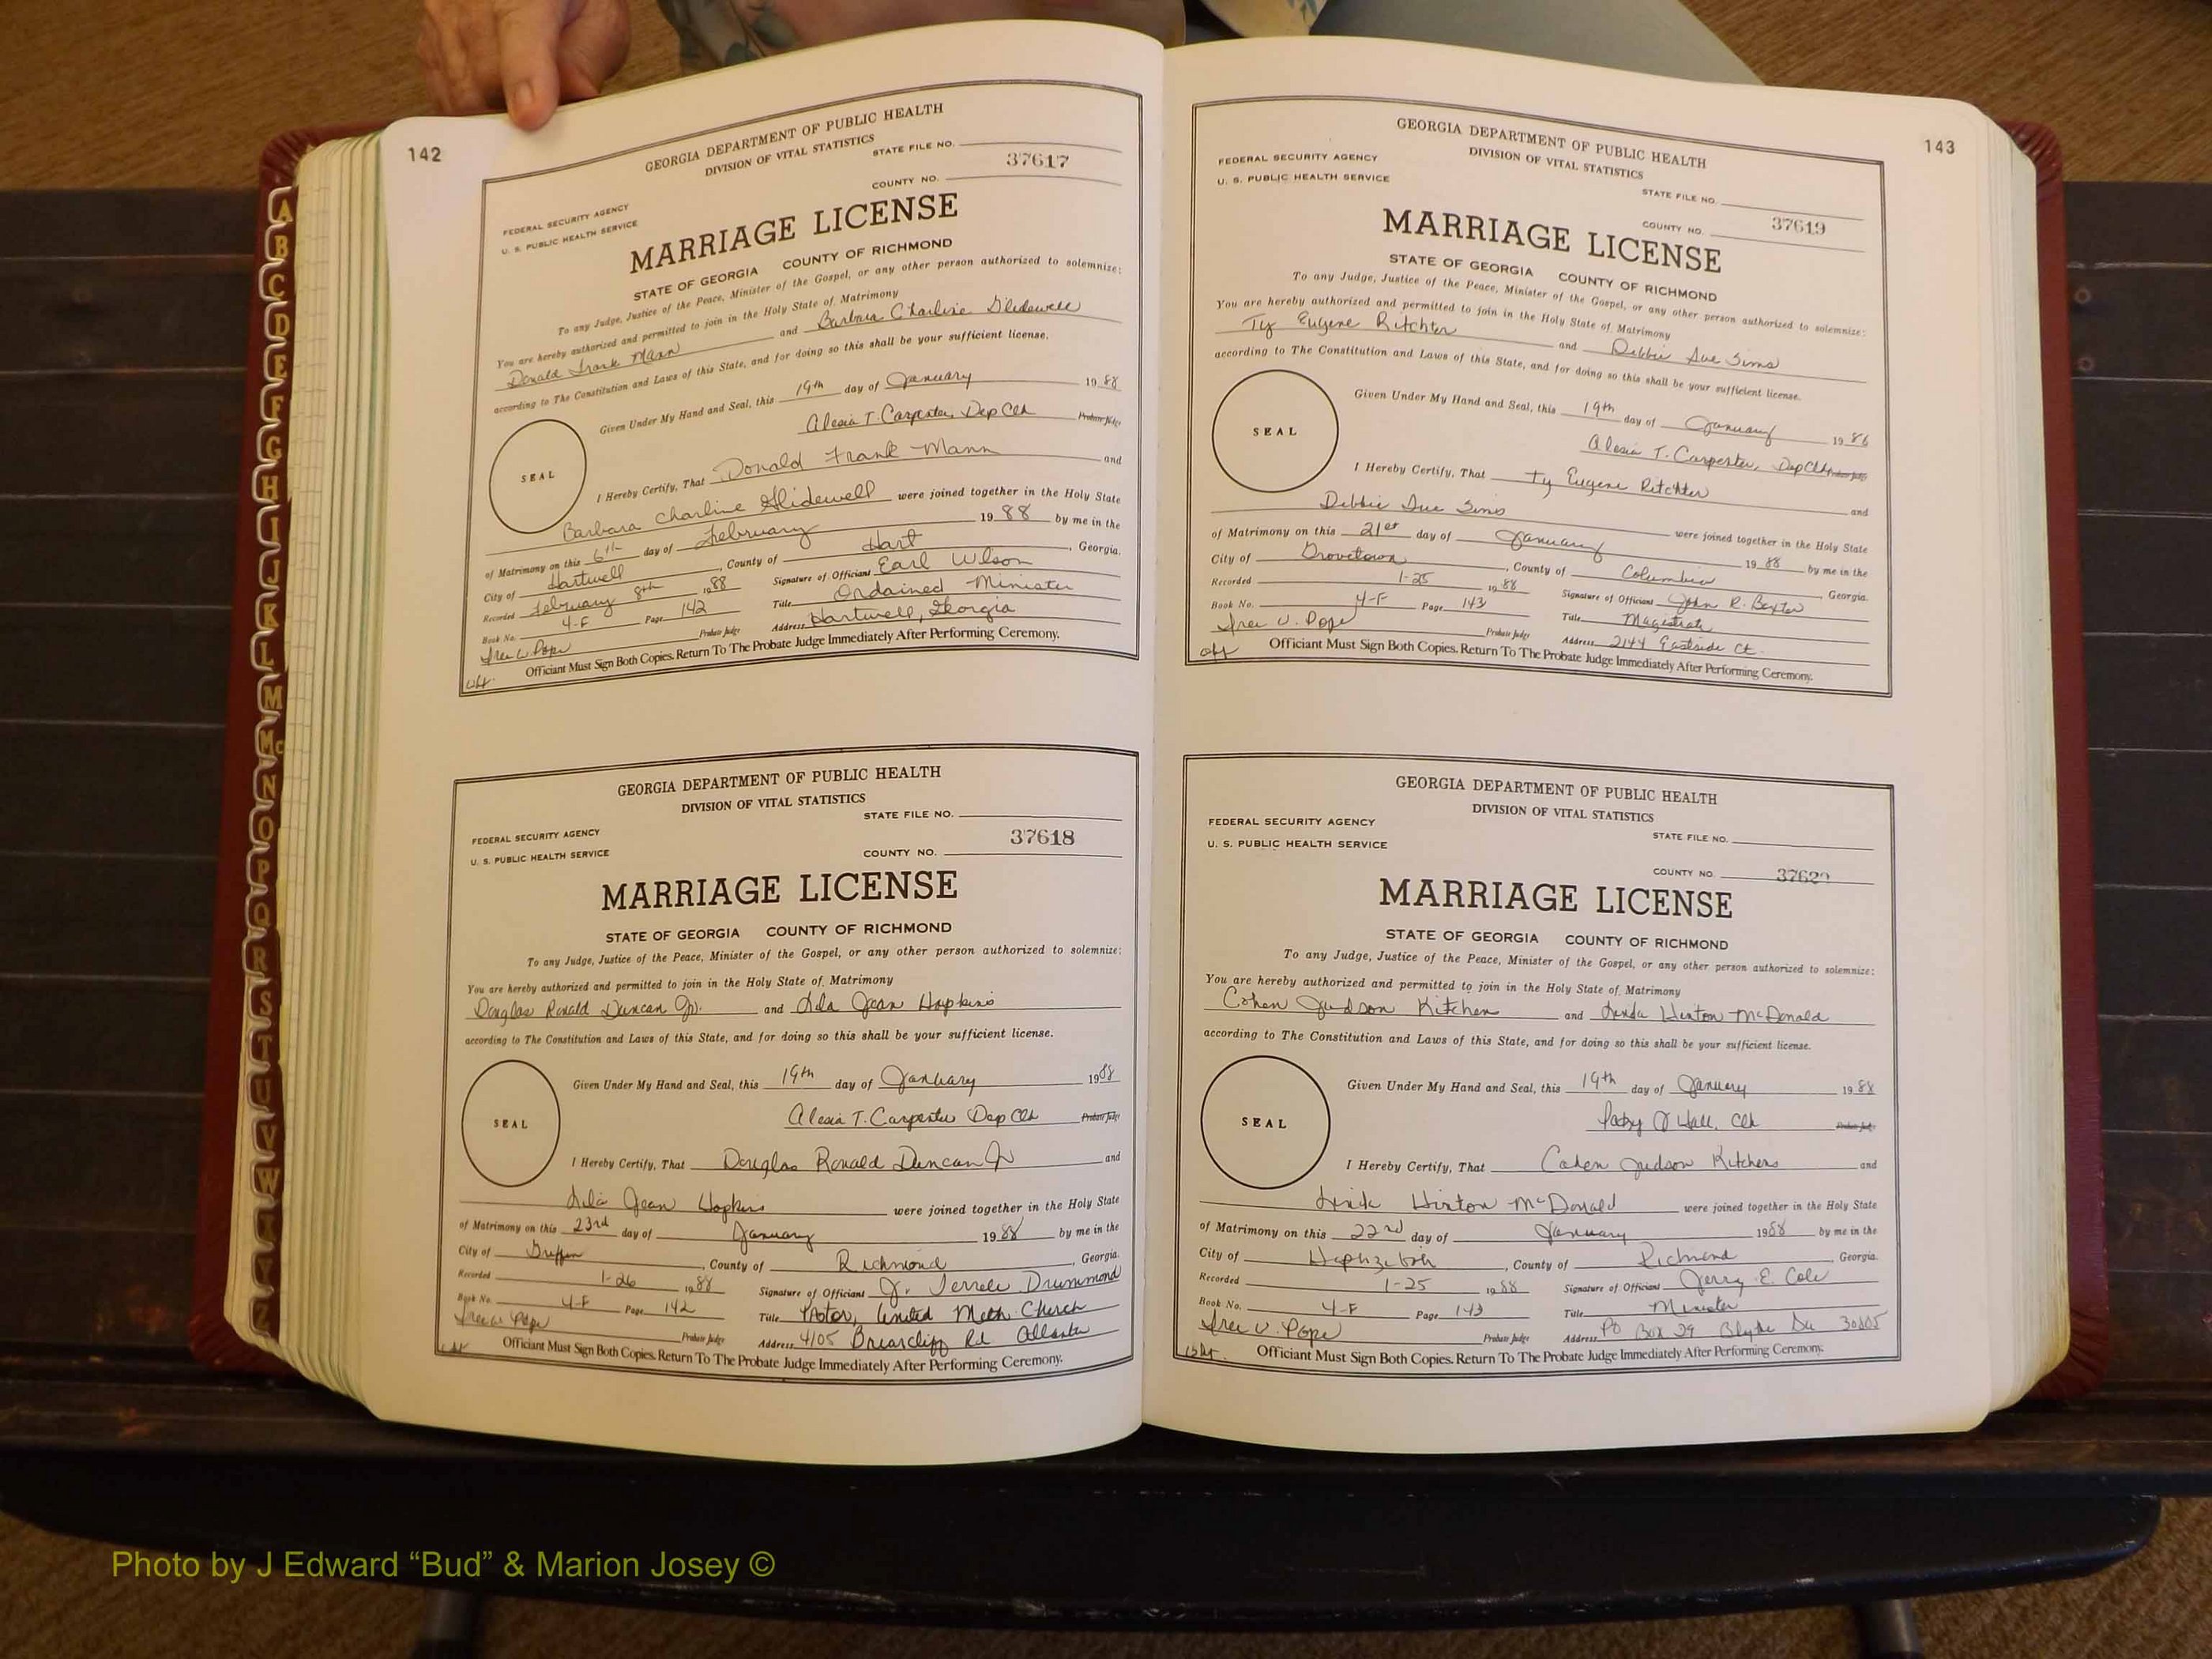 142
GEORGIA DEPARTMENT OF PUBLIC HEALTH
DIVISION OF VITAL STATISTICS
STATE FILE NO.
37617
COUNTY NO.
FEDERAL SECURITY AGENCY
U. S. PUBLIC HEALTH SERVICE
MARRIAGE LICENSE
STATE OF GEORGIA COUNTY OF RICHMOND
To any Judge, Justice of the Peace, Minister of the Gospel, or any other person authorized to solemnize:
You are hereby authorized and permitted to join in the Holy State of Matrimony
Donald Frank Mann and Barbara Charline Glidewell
according to The Constitution and Laws of this State, and for doing so this shall be your sufficient license.
Given Under My Hand and Seal, this 19th day of January 1988
Alesia T. Carpenter, Dep Clk Probate Judge
SEAL
I Hereby Certify, That Donald Frank Mann and
Barbara Charline Glidewell were joined together in the Holy State
of Matrimony on this 6th day of February 1988 by me in the
City of Hartwell, County of Hart, Georgia.
Recorded February 8th 1988 Signature of Officiant Earl Wilson
Book No. 4-F Page 142 Title Ordained Minister
Probate Judge Address Hartwell, Georgia
Officiant Must Sign Both Copies. Return To The Probate Judge Immediately After Performing Ceremony.
GEORGIA DEPARTMENT OF PUBLIC HEALTH
DIVISION OF VITAL STATISTICS
STATE FILE NO.
FEDERAL SECURITY AGENCY
U. S. PUBLIC HEALTH SERVICE
37618
COUNTY NO.
MARRIAGE LICENSE
STATE OF GEORGIA COUNTY OF RICHMOND
To any Judge, Justice of the Peace, Minister of the Gospel, or any other person authorized to solemnize:
You are hereby authorized and permitted to join in the Holy State of Matrimony
Douglas Ronald Duncan Jr. and Jean Hopkins
according to The Constitution and Laws of this State, and for doing so this shall be your sufficient license.
Given Under My Hand and Seal, this 19th day of January 1988
Alesia T. Carpenter Dep Clk Probate Judge
SEAL
I Hereby Certify, That Douglas Ronald Duncan Jr and
Jean Hopkins were joined together in the Holy State
of Matrimony on this 23rd day of January 1988 by me in the
City of Griffin, County of Richmond, Georgia.
Recorded 1-26 1988 Signature of Officiant J. Terrell Drummond
Book No. 4-F Page 142 Title Pastor, United Meth. Church
Probate Judge Address 4105 Briarcliff Rd Atlanta
Officiant Must Sign Both Copies. Return To The Probate Judge Immediately After Performing Ceremony.
143
GEORGIA DEPARTMENT OF PUBLIC HEALTH
DIVISION OF VITAL STATISTICS
FEDERAL SECURITY AGENCY
U. S. PUBLIC HEALTH SERVICE
STATE FILE NO.
COUNTY NO. 37619
MARRIAGE LICENSE
STATE OF GEORGIA COUNTY OF RICHMOND
To any Judge, Justice of the Peace, Minister of the Gospel, or any other person authorized to solemnize:
You are hereby authorized and permitted to join in the Holy State of Matrimony
Ty Eugene Ritchter and Debbie Sue Sims
according to The Constitution and Laws of this State, and for doing so this shall be your sufficient license.
Given Under My Hand and Seal, this 19th day of January 1986
Alesia T. Carpenter, Dep Clk Probate Judge
SEAL
I Hereby Certify, That Ty Eugene Ritchter and
Debbie Sue Sims were joined together in the Holy State
of Matrimony on this 21st day of January 1988 by me in the
City of Grovetown, County of Columbia Georgia.
Recorded 1-25 1988 Signature of Officiant John R. Baxter
Book No. 4-F Page 143 Title Magistrate
Probate Judge Address 2144 Eastside Ct.
Officiant Must Sign Both Copies. Return To The Probate Judge Immediately After Performing Ceremony.
GEORGIA DEPARTMENT OF PUBLIC HEALTH
DIVISION OF VITAL STATISTICS
FEDERAL SECURITY AGENCY
U. S. PUBLIC HEALTH SERVICE
STATE FILE NO.
COUNTY NO.
MARRIAGE LICENSE
STATE OF GEORGIA COUNTY OF RICHMOND
To any Judge, Justice of the Peace, Minister of the Gospel, or any other person authorized to solemnize:
You are hereby authorized and permitted to join in the Holy State of Matrimony
Cohen Judson Kitchens and Linda Hinton McDonald
according to The Constitution and Laws of this State, and for doing so this shall be your sufficient license.
Given Under My Hand and Seal, this 19th day of January 1988
Patsy J Hall, Clk
SEAL
I Hereby Certify, That Cohen Judson Kitchens and
Linda Hinton McDonald were joined together in the Holy State
of Matrimony on this 22nd day of January 1988 by me in the
City of Hephzibah, County of Richmond Georgia.
Recorded 1-25 1988 Signature of Officiant Jerry E. Cole
Book No. 4-F Page 143 Title Minister
Probate Judge Address PO Box 29 Blythe Ga 30805
Officiant Must Sign Both Copies. Return To The Probate Judge Immediately After Performing Ceremony.
A
B
C
D
E
F
G
H
I
J
K
L
M
Mc
N
O
P
Q
R
S
T
U
V
W
X
Y
Z
Photo by J Edward “Bud” & Marion Josey ©